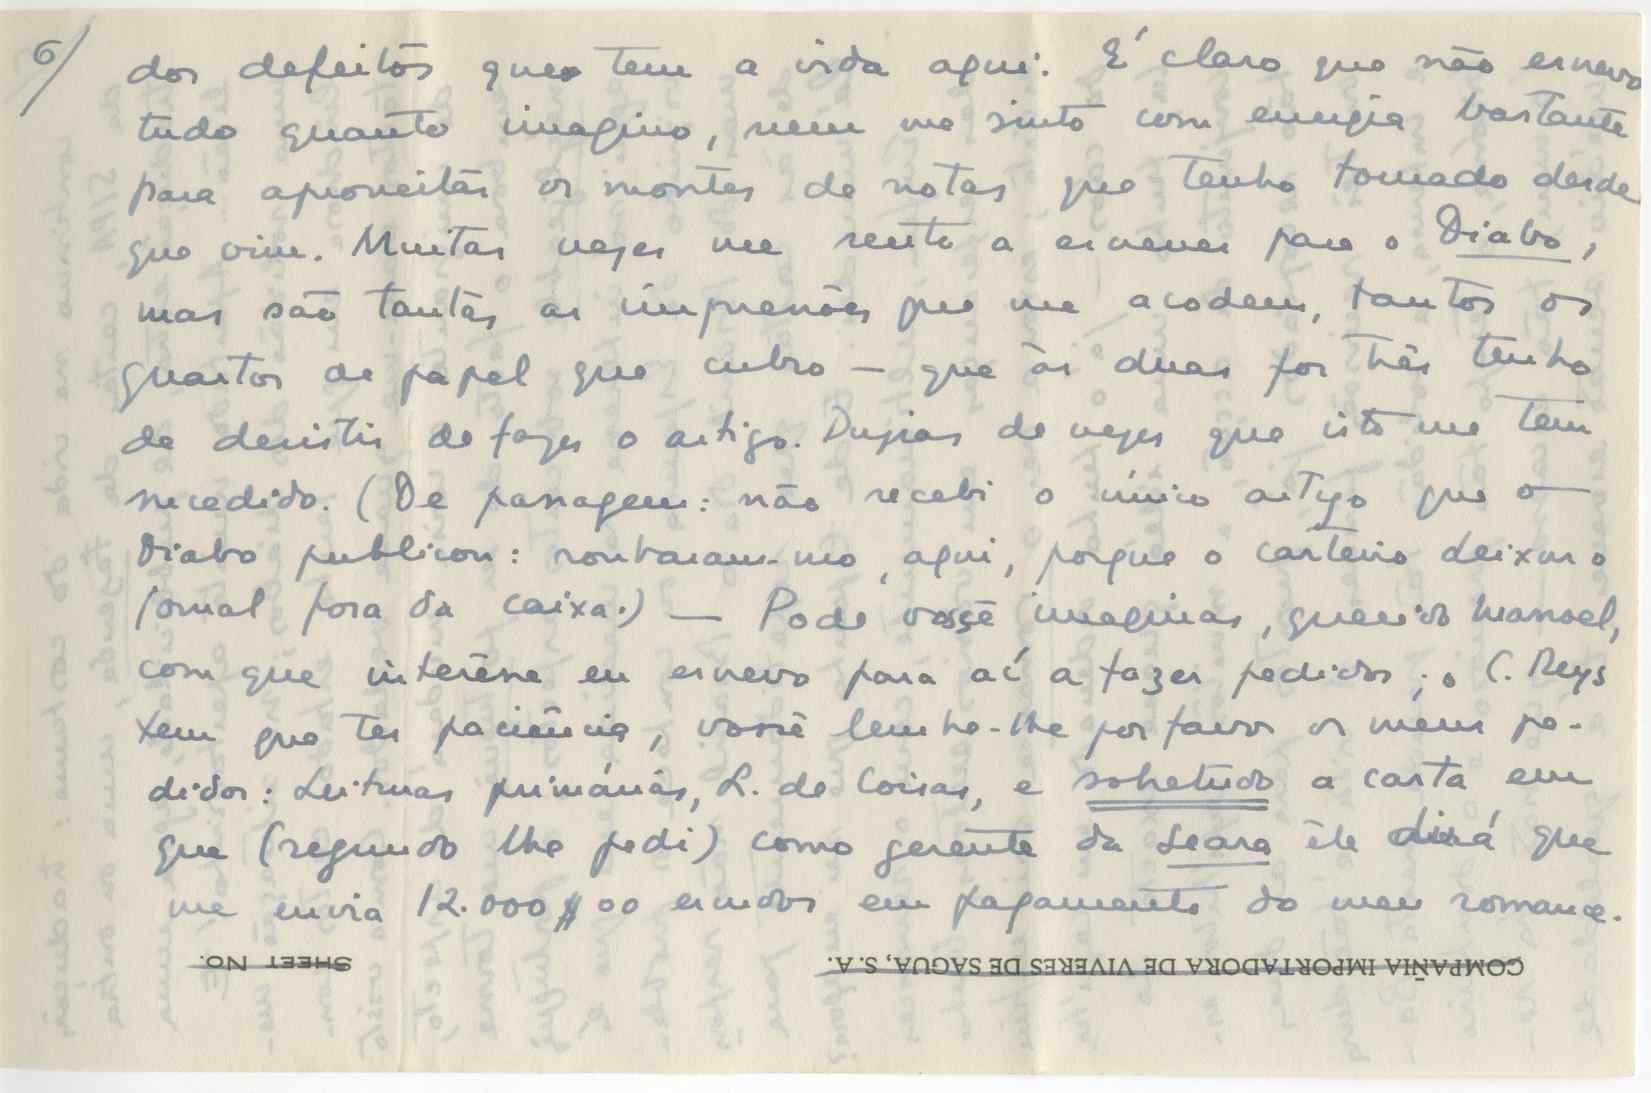 6/
dos defeitos que tem a vida aqui. É claro que não escrevo
tudo quanto imagino, nem me sinto com energia bastante
para aproveitar os montes de notas que tenho tomado desde
que vim. Muitas vezes me sento a escrever para o Diabo,
mas são tantas as impressões que me acodem, tantos os
quartos de papel que cubro — que às duas por três tenho
de desistir de fazer o artigo. Duzias de vezes que isto me tem
sucedido. (De passagem: não recebi o único artigo que o
Diabo publicou: roubaram-mo, aqui, porque o carteiro deixou o
jornal fora da caixa.) — Pode você imaginar, querido Manoel,
com que interêsse eu escrevo para aí a fazer pedidos; o C. Reys
tem que ter paciência, você lembre-lhe por favor os meus pe-
didos: Leituras primárias, L. de Coisas, e sobretudo a carta em
que (segundo lhe pedi) como gerente da Seara êle dirá que
me envia 12.000$00 escudos em pagamento do meu romance.
COMPAÑIA IMPORTADORA DE VIVERES DE SAGUA, S.A.
SHEET NO.